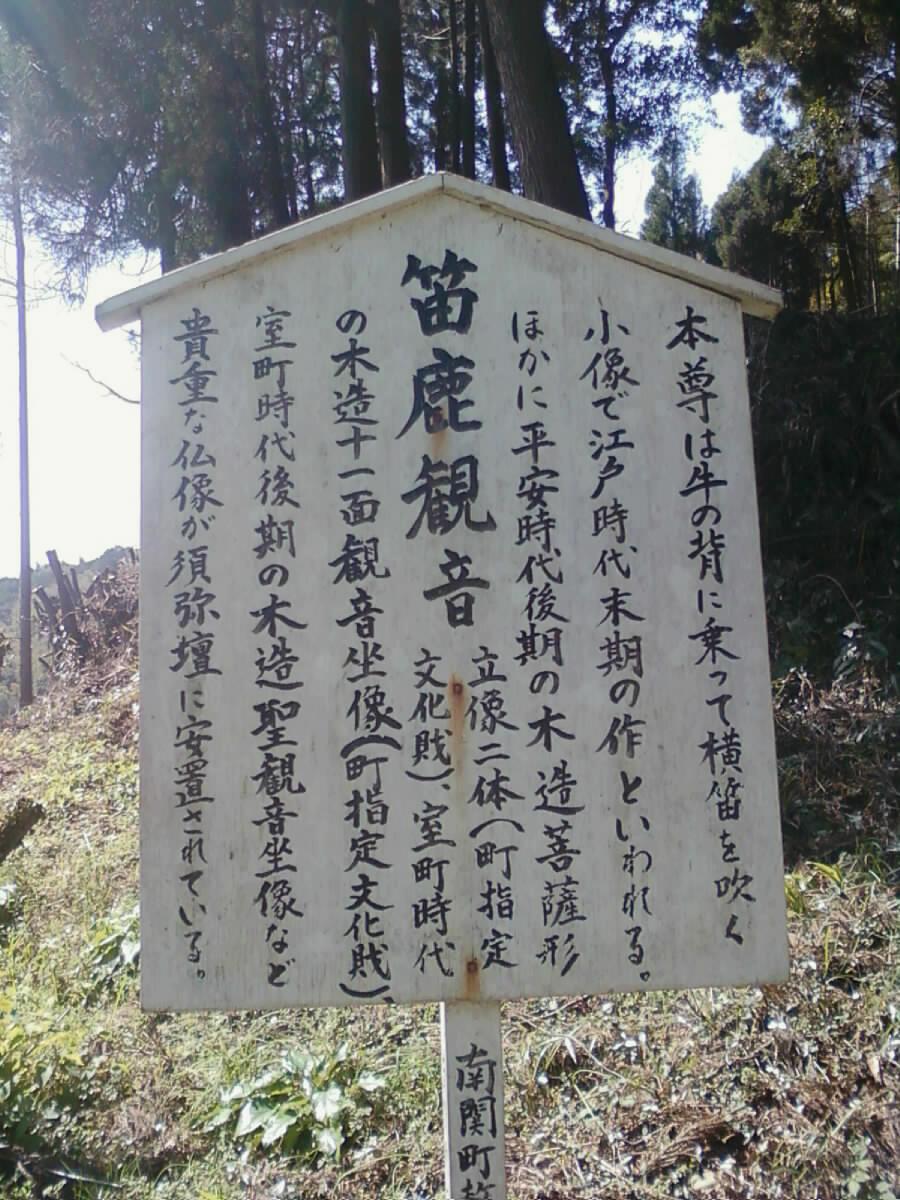 笛鹿観音
本尊は牛の背に乗って横笛を吹く
小像で江戸時代末期の作といわれる。
ほかに平安時代後期の木造菩薩形
立像二体(町指定
文化財)、室町時代
の木造十一面観音坐像(町指定文化財)、
室町時代後期の木造聖観音坐像など
貴重な仏像が須弥壇に安置されている。
南関町